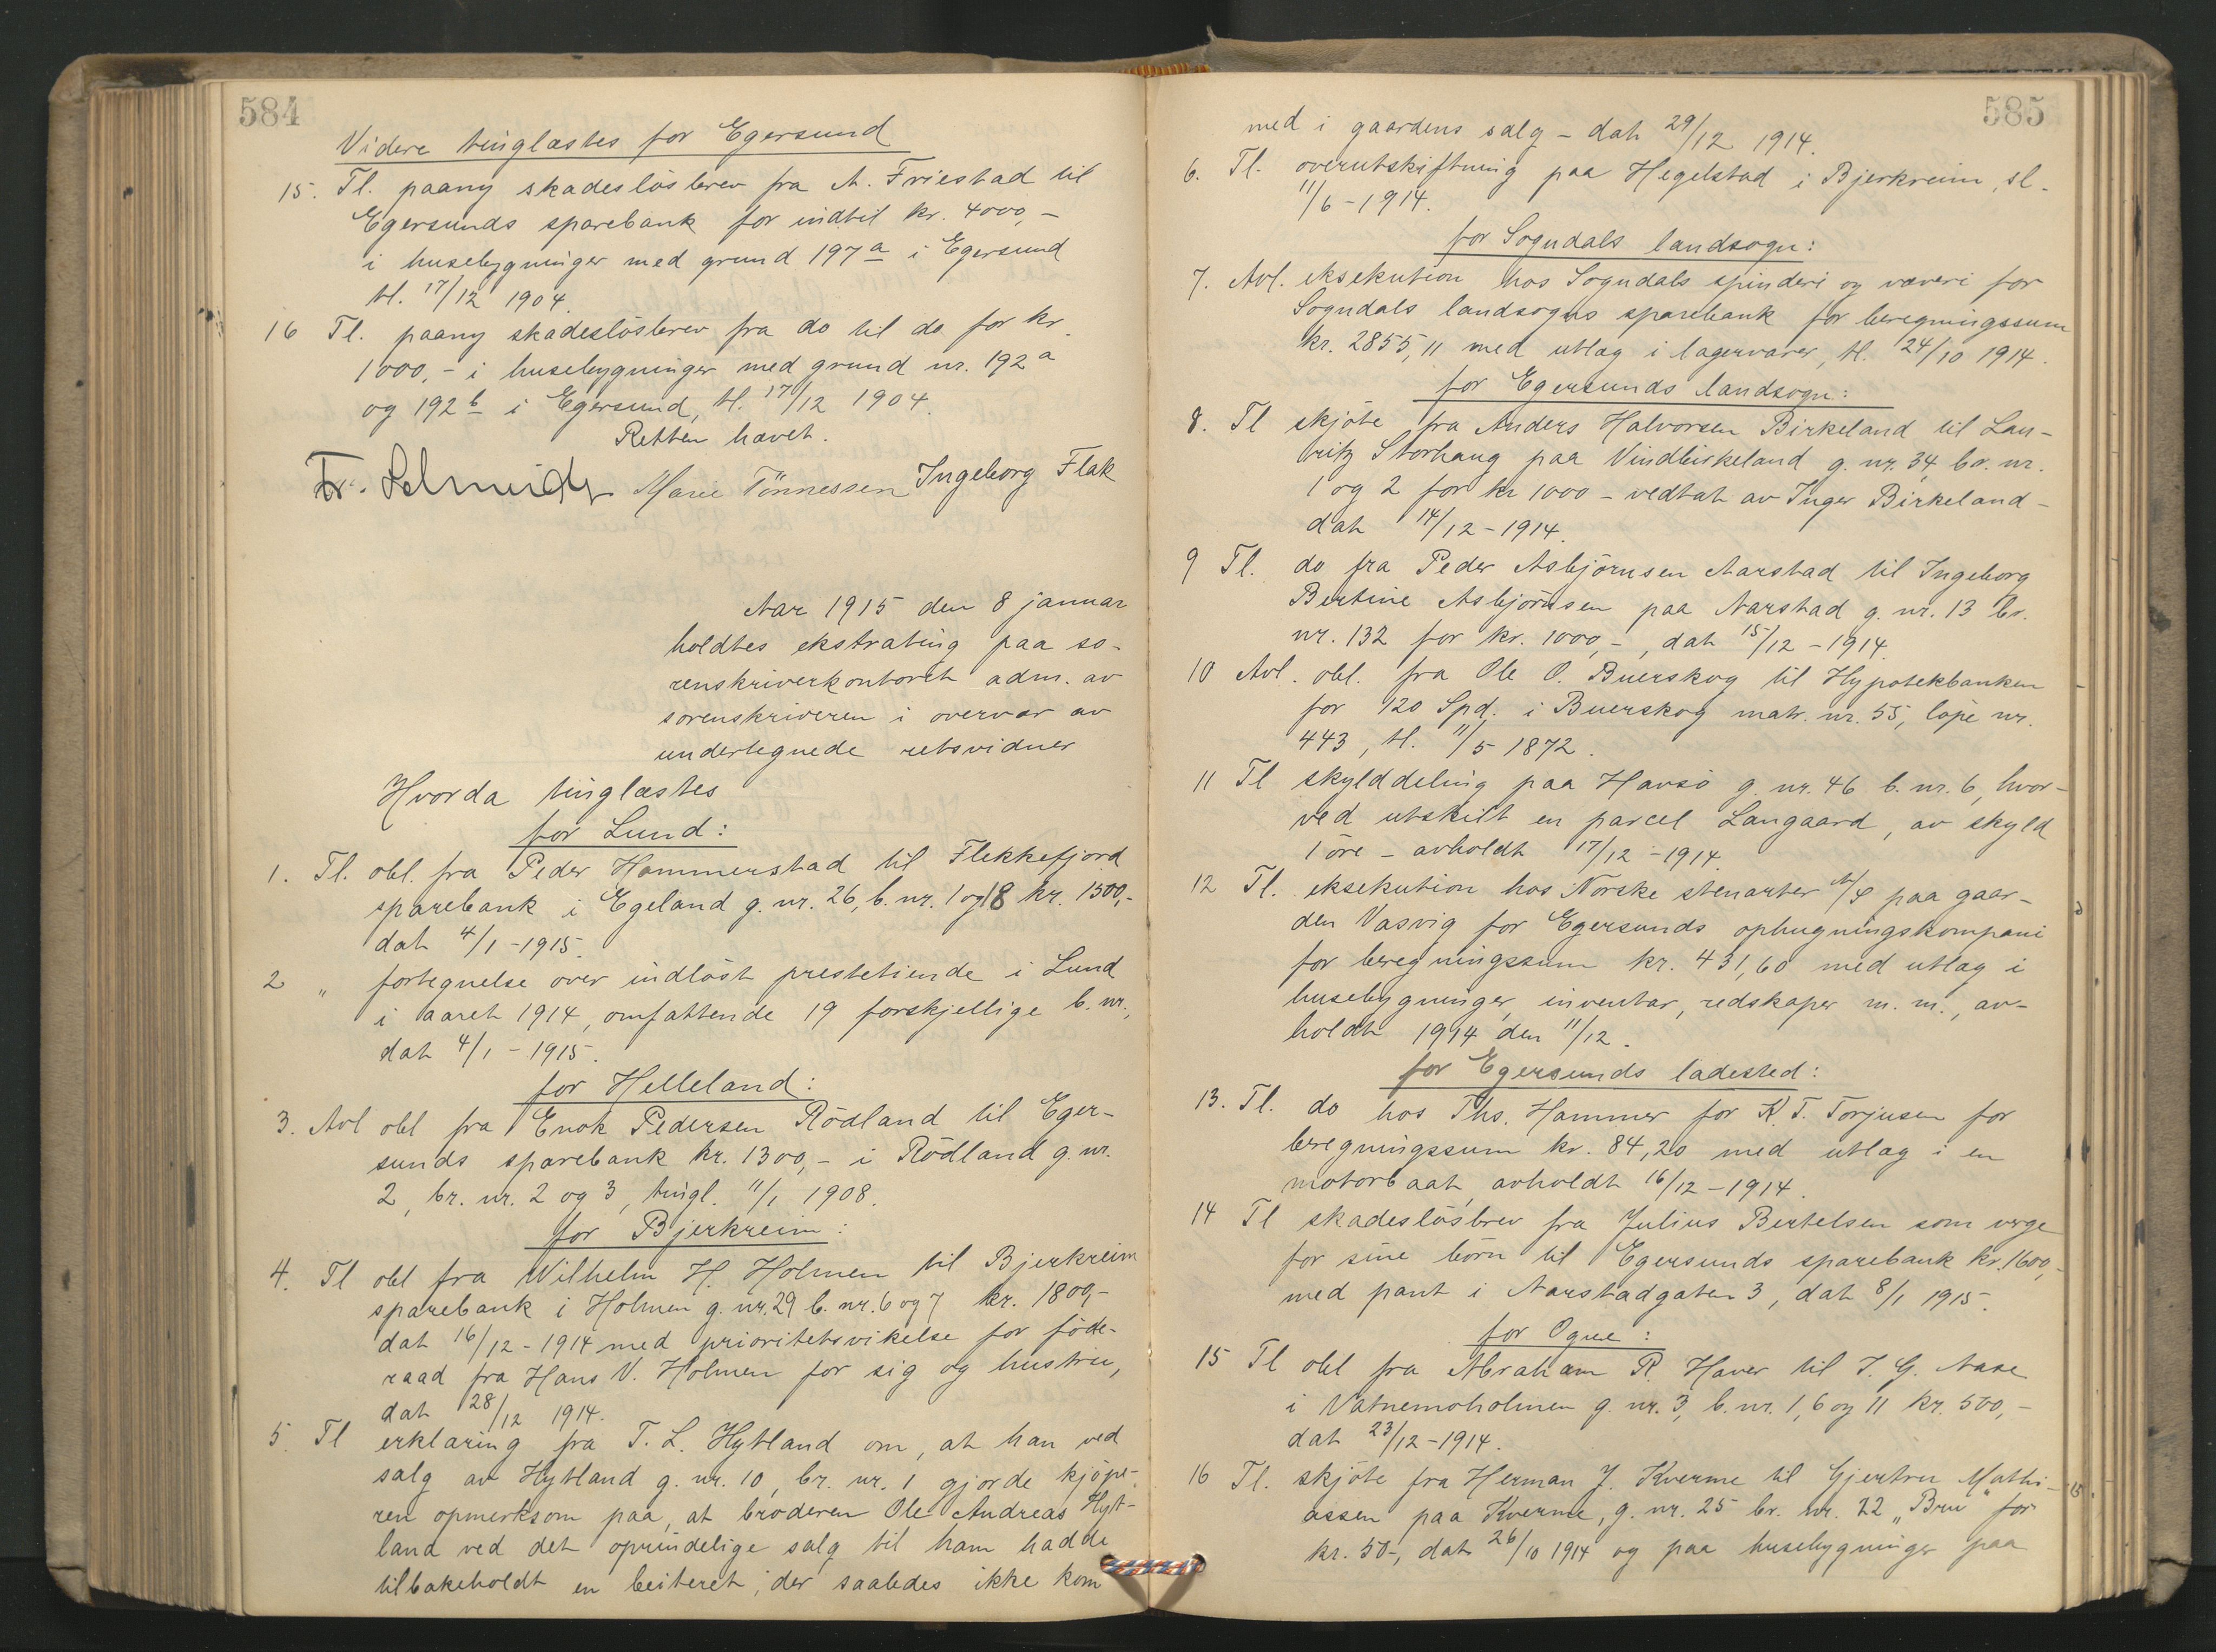 584
Videre tinglæstes for Egersund
15. Tl. paany skadeslösbrev fra A. Friestad til
Egersunds sparebank for indtil kr. 4000,-
i husebygninger med grund 197a i Egersund
tl. 17/12 1904.
16 Tl. paany skadeslösbrev fra do til do for kr.
1000,- i husebygninger med grund nr. 192a
og 192b i Egersund, tl. 17/12 1904.
Retten hævet.
Fr. Schneider Marie Tönnessen Ingeborg Flak
Aar 1915 den 8 januar
holdtes ekstrating paa so-
renskriverkontoret adm. av
sorenskriveren i overvær av
undertegnede retsvidner
Hvorda tinglæstes
for Lund:
1. Tl. obl. fra Peder Hammerstad til Flekkefjord
sparebank i Egeland g. nr. 26, b. nr. 1 og 18 kr. 1500,-
dat 4/1-1915.
2 „ fortegnelse over indlöst prestetiende i Lund
i aaret 1914, omfattende 19 forskjellige b. nr.,
dat 4/1-1915.
for Helleland:
3. Avl obl fra Enok Pedersen Rödland til Eger-
sunds sparebank kr. 1300,- i Rödland g. nr.
2, br. nr. 2 og 3, tingl. 11/1 1908.
for Bjerkreim:
4. Tl obl fra Wilhelm H. Holmen til Bjerkreim
sparebank i Holmen g. nr. 29 b. nr. 6 og 7 kr. 1800,-
dat 16/12-1914 med prioritetsvikelse for föde-
raad fra Hans V. Holmen for sig og hustru,
dat 28/12 1914.
5. Tl erklæring fra T. L. Hytland om, at han ved
salg av Hytland g. nr. 10, br. nr. 1 gjorde kjöpe-
ren opmerksom paa, at broderen Ole Andreas Hyt-
land ved det oprindelige salg til ham hadde
tilbakeholdt en beiteret, der saaledes ikke kom
585
med i gaardens salg - dat 29/12 1914.
6. Tl. overutskiftning paa Hegelstad i Bjerkreim, sl.
11/6-1914.
for Sogndals landsogn:
7. Avl. eksekution hos Sogndals spinderi og væveri for
Sogndals landsogns sparebank for beregningssum
kr. 2855,11 med utlæg i lagervarer, tl. 24/10 1914.
for Egersunds landsogn:
8. Tl skjöte fra Anders Halvorsen Birkeland til Lau-
ritz Storhaug paa Vindbirkeland g. nr. 34 br. nr.
1 og 2 for kr 1000 - vedtat av Inger Birkeland -
dat 14/12-1914.
9 Tl. do fra Peder Asbjörnsen Aarstad til Ingeborg
Bertine Asbjörnsen paa Aarstad g. nr. 13 br.
nr. 132 for kr. 1000,-, dat 15/12-1914.
10 Avl. obl. fra Ole O. Buerskog til Hypotekbanken
for 120 Spd. i Buerskog matr. nr. 55, löpe nr.
443, tl. 11/5 1872.
11 Tl skylddeling paa Havsö g. nr. 46 b. nr. 6, hvor-
ved utskilt en parcel Langaard, av skyld
1 öre - avholdt 17/12-1914.
12 Tl. eksekution hos Norske stenarter A/S paa gaar-
den Vasvig for Egersunds ophugningskompani
for beregningssum kr. 431,60 med utlæg i
husebygninger, inventar, redskaper m. m., av-
holdt 1914 den 11/12.
for Egersunds ladested:
13. Tl. do hos Ths. Hammer for K. T. Torjusen for
beregningssum kr. 84,20 med utlæg i en
motorbaat, avholdt 16/12-1914.
14 Tl skadeslösbrev fra Julius Bertelsen som verge
for sine börn til Egersunds sparebank kr. 1600,-
med pant i Aarstadgaten 3, dat 8/1 1915.
for Ogne:
15 Tl obl fra Abraham R. Haver til T. G. Aase
i Vatnemoholmen g. nr. 3, b. nr. 1, 6 og 11 kr. 500,-
dat 23/12-1914.
16 Tl. skjöte fra Herman J. Kverme til Gjertru Mathi-
assen paa Kverme, g. nr. 25 br. nr. 22 „Bru" for
kr. 50-, dat 26/10 1914 og paa husebygninger paa